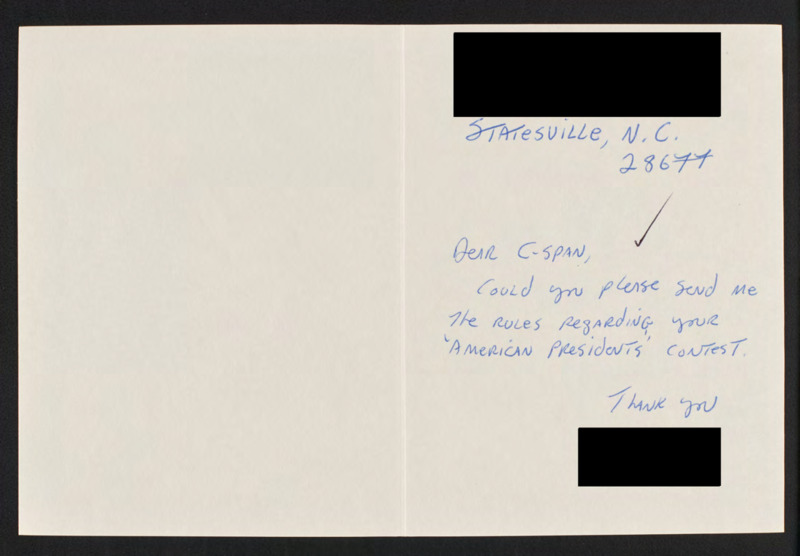 Statesville, N.C.
28677
Dear C-SPAN,
Could you please send me
the rules regarding your
'American Presidents' contest.
Thank you